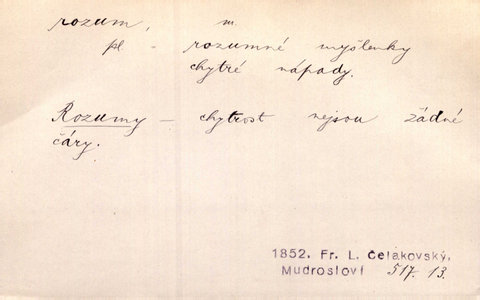 rozum, m.
pl - rozumné myšlenky
chytré nápady.
Rozumy - chytrost nejsou žádné
čáry.
1852. Fr. L. Čelakovský,
Mudrosloví 517. 13.